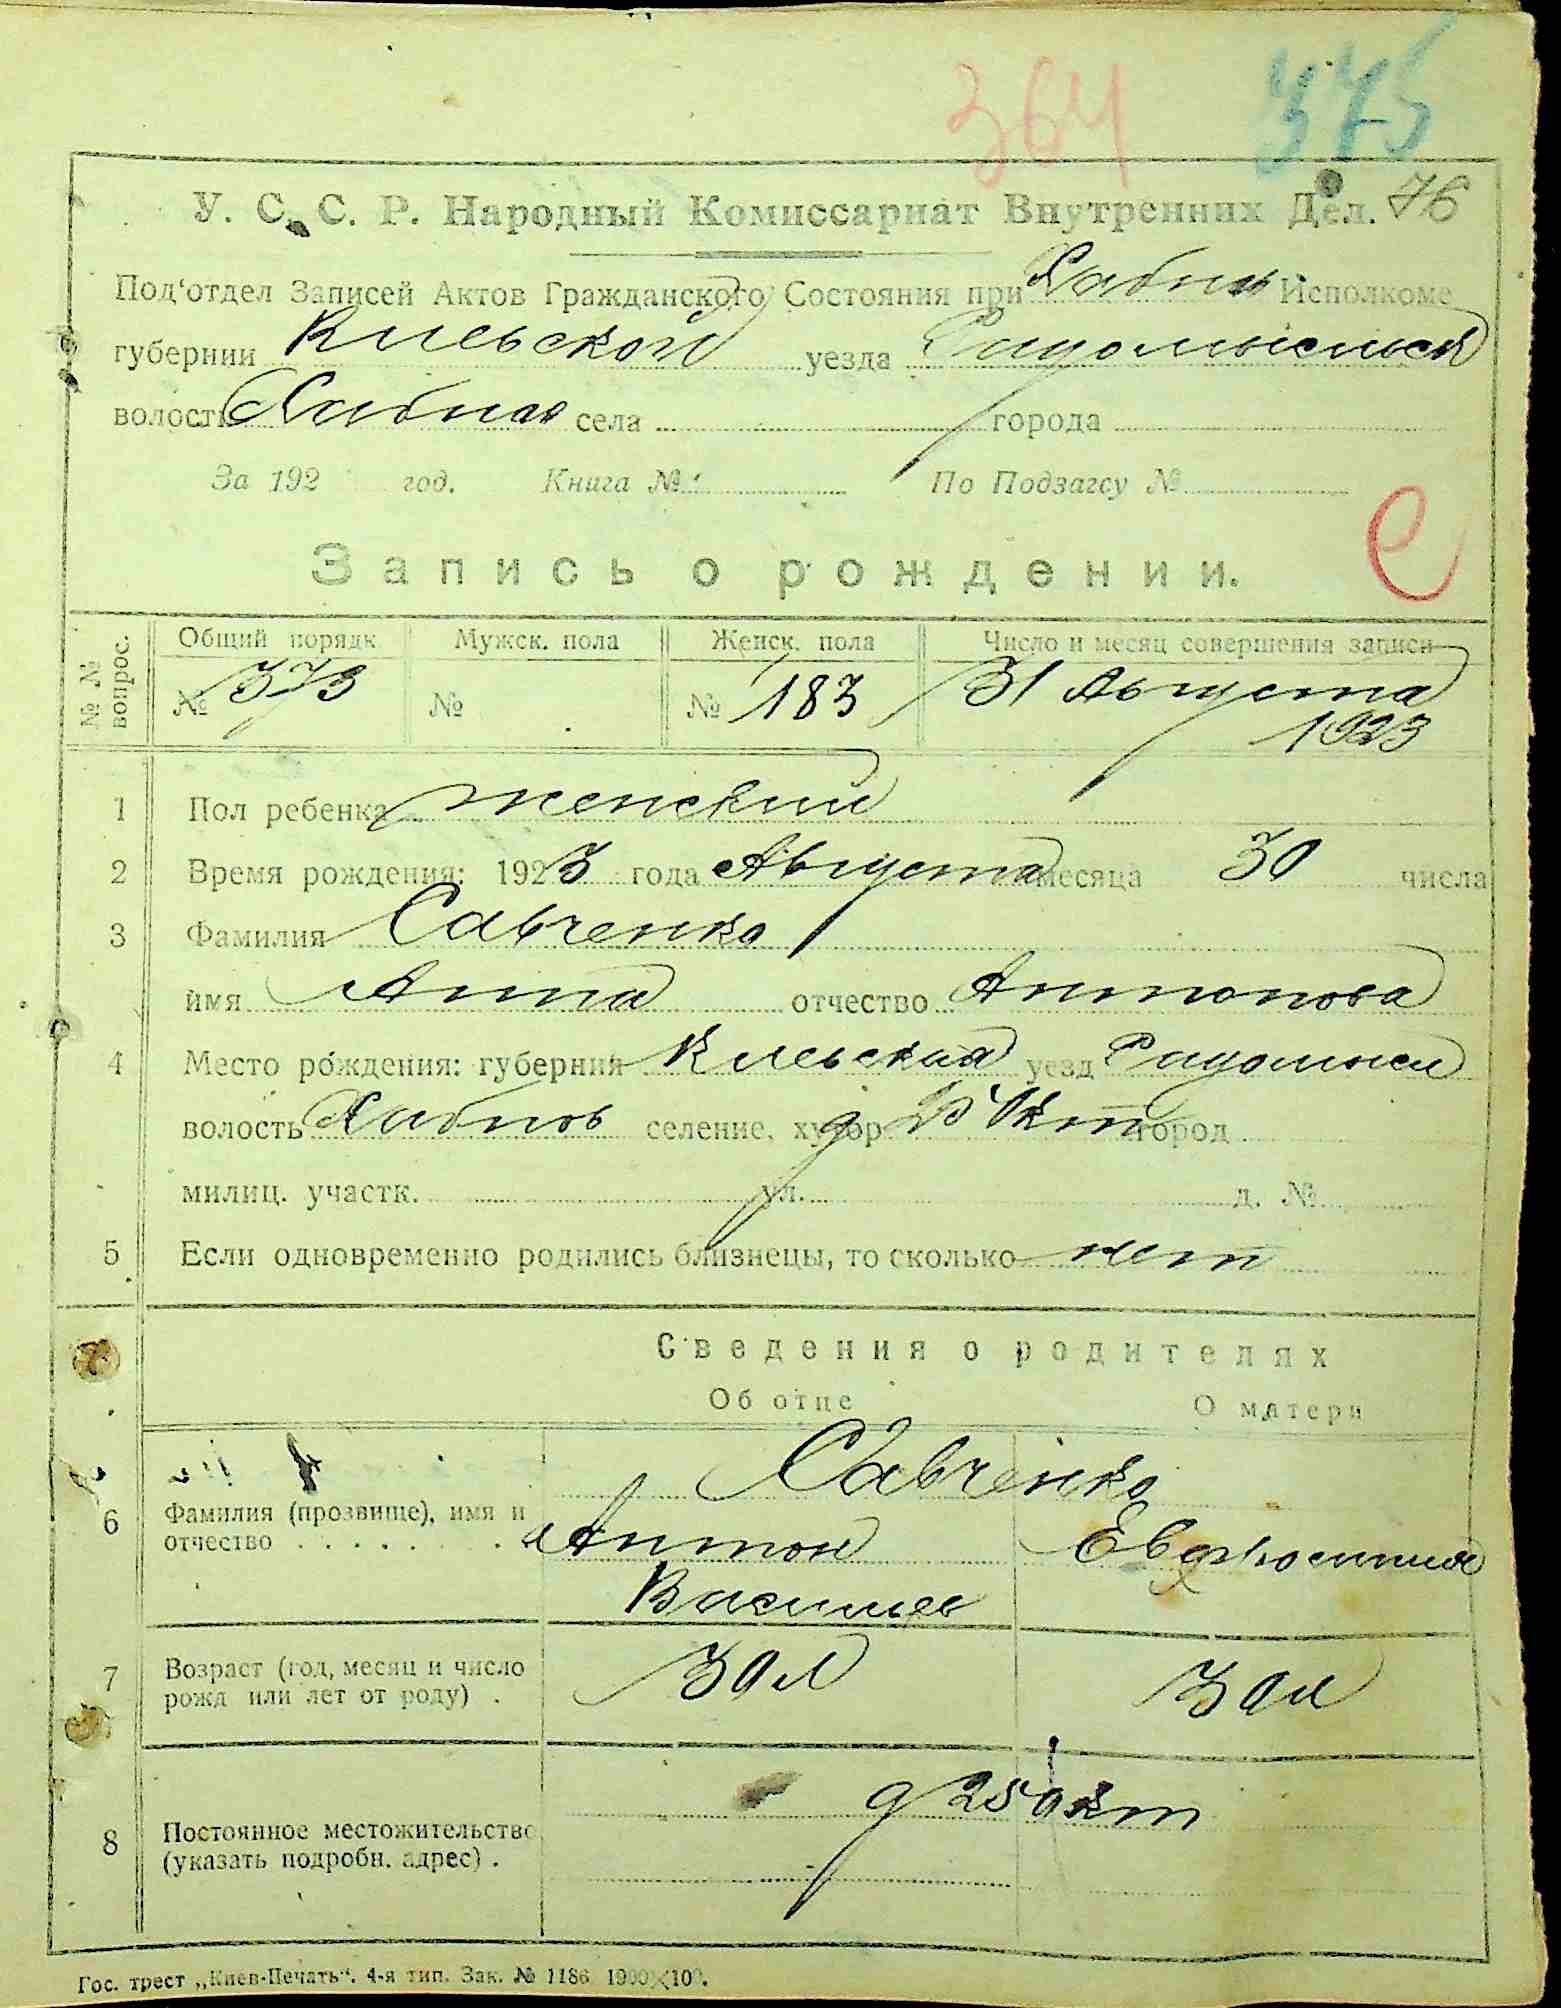 364 375
У. С. С. Р. Народный Комиссариат Внутренних Дел. 76
Под‘отдел Записей Актов Гражданского Состояния при Хабнов Исполкоме
губернии Киевской уезда Радомысльск
волости Хабная села города
За 192 год. Книга № По Подзагсу №
Запись о рождении.
С
№ № вопрос. Общий порядк Мужск. пола Женск. пола Число и месяц совершения записи
№ 373 № № 183 31 Августа
1923
1 Пол ребенка женский
2 Время рождения: 1923 года Августа месяца 30 числа
3 Фамилия Савченко
имя Анна отчество Антонова
4 Место рождения: губерния Киевская уезд Радомысл
волость Хабнов селение, хутор город
милиц. участк. ул. д. №
5 Если одновременно родились близнецы, то сколько нет
Сведения о родителях
Об отце О матери
Савченко
6 Фамилия (прозвище), имя и отчество Антон Евфросиния
Васильев
7 Возраст (год, месяц и число рожд или лет от роду) . 30 л 30 л
8 Постоянное местожительство (указать подробн. адрес) . д 25 Окт
Гос. трест „Киев-Печать“. 4-я тип. Зак. № 1186 1900×100.